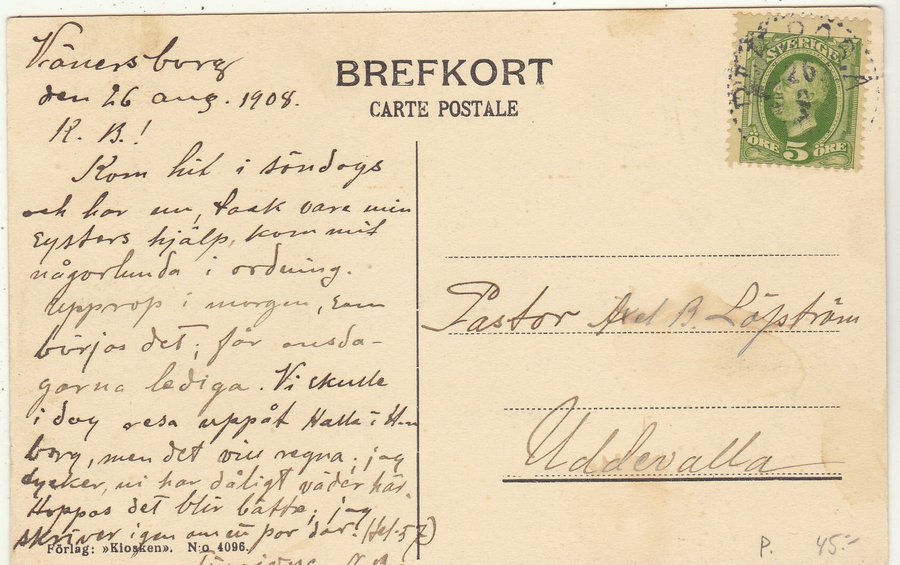 Vänersborg
den 26 aug. 1908.
K. B.!
Kom hit i söndags
och har nu, tack vare min
systers hjälp, kommit
någorlunda i ordning.
Upprop i morgon, som
börjas det; får onsda-
garna lediga. Vi skulle
i dag resa uppåt Halle- i Hun
berg, men det vill regna; jag
tycker, ni har dåligt väder här.
Hoppas det blir bättre; jag
skriver igen om ett par dar.
Förlag: »Kiosken». N:o 4096.
BREFKORT
CARTE POSTALE
SVERIGE
ÖRE 5 ÖRE
Pastor Axel B. Löfström
Uddevalla
P. 45:-